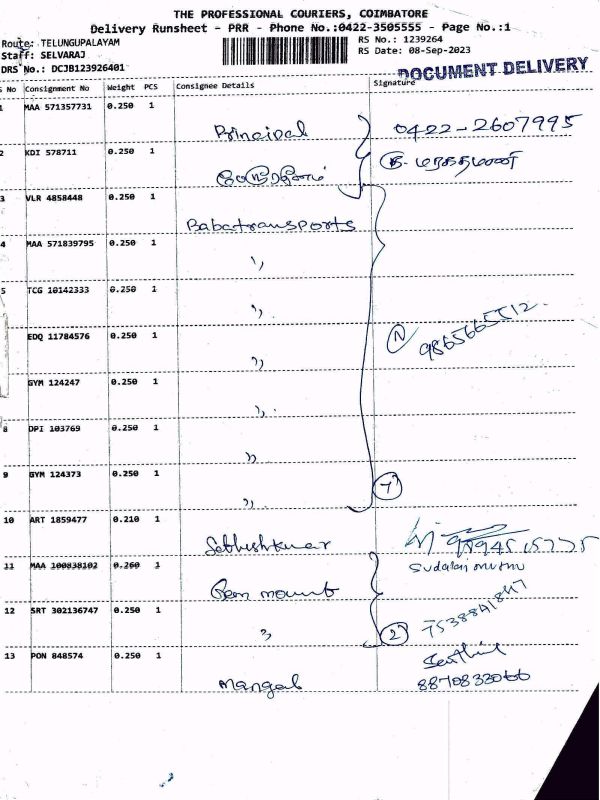 THE PROFESSIONAL COURIERS, COIMBATORE
Delivery Runsheet - PRR - Phone No.:0422-3505555 - Page No.:1
Route: TELUNGUPALAYAM RS No.: 1239264
Staff: SELVARAJ RS Date: 08-Sep-2023
DRS No.: DCJB123926401 DOCUMENT DELIVERY
S No Consignment No Weight PCS Consignee Details Signature
1 MAA 571357731 0.250 1
Principal 0422-2607995
2 KDI 578711 0.250 1
3 VLR 4858448 0.250 1
Babatransports
4 MAA 571839795 0.250 1
"
5 TCG 10142333 0.250 1
"
EDQ 11784576 0.250 1
" 9865665512
GYM 124247 0.250 1
"
8 DPI 103769 0.250 1
"
9 GYM 124373 0.250 1
" 7
10 ART 1859477 0.210 1
11 MAA 100838102 0.260 1 Sudalai muthu
Gem mount
12 SRT 302136747 0.250 1
" 2 7538841847
13 PON 848574 0.250 1 Senthil
Mangal 8870833066